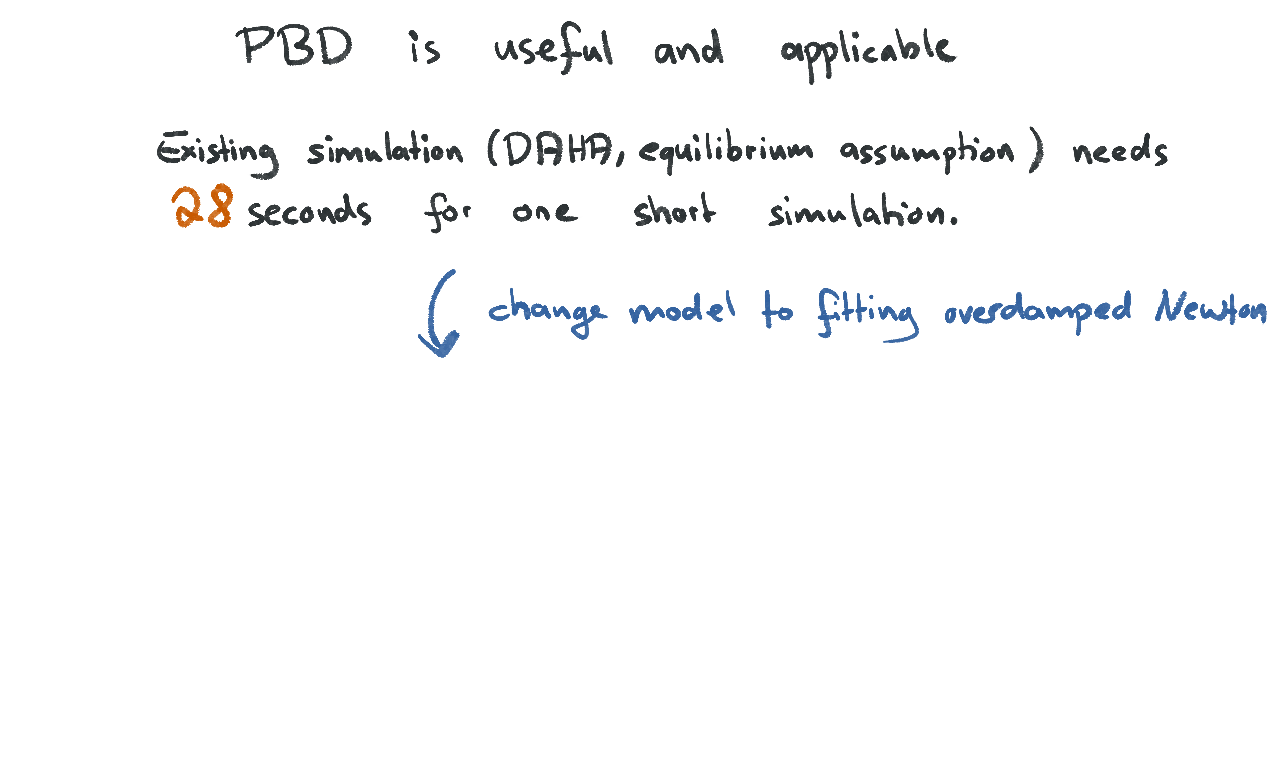 PBD is useful and applicable
Existing simulation (DAHA, equilibrium assumption) needs
28 seconds for one short simulation.
change model to fitting overdamped Newton